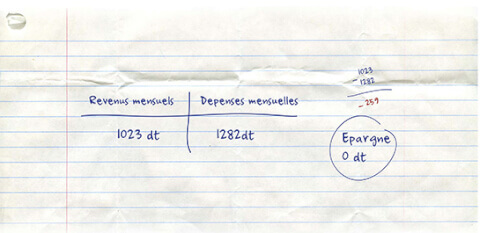 Revenus mensuels Depenses mensuelles
1023 dt 1282dt
1023
- 1282
- 259
Epargne
0 dt